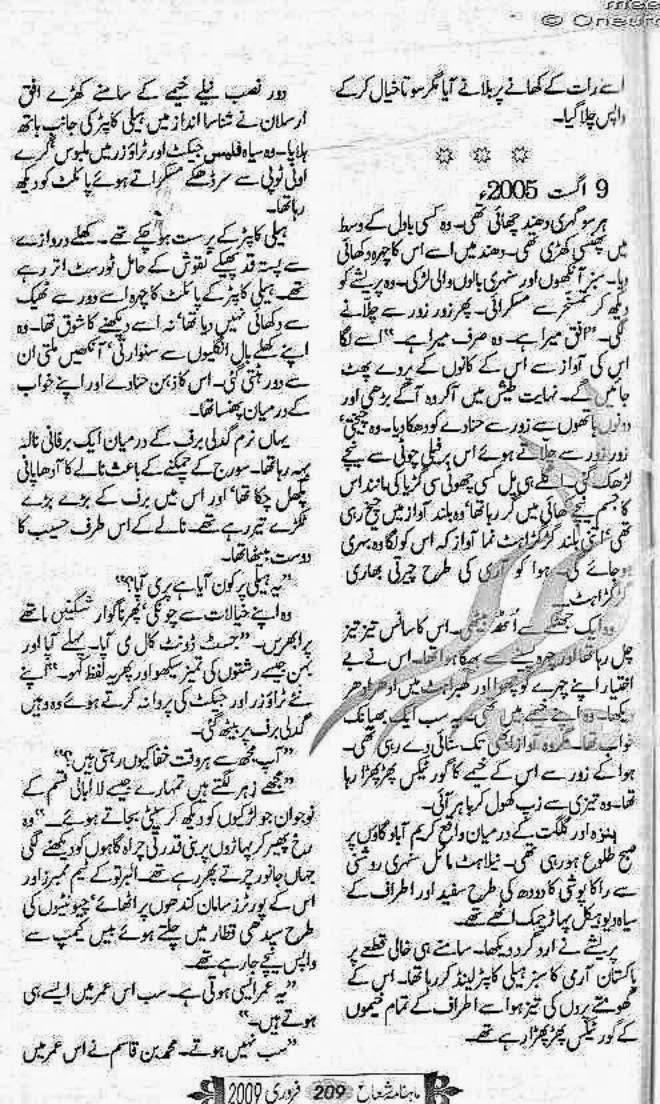 اسے رات کے کھانے پر بلانے آیا مگر سوتا خیال کر کے
واپس چلا گیا۔
9 اگست 2005ء
ہر سو گہری دھند چھائی تھی۔ وہ کسی بادل کے وسط
میں پھنسی کھڑی تھی۔ دھند میں اسے اس کا چہرہ دکھائی
دیا۔ سبز آنکھوں اور سنہری بالوں والی لڑکی۔ وہ پریشے کو
دیکھ کر تمسخر سے مسکرائی۔ پھر زور زور سے چلانے
لگی۔ "افق میرا ہے۔ وہ صرف میرا ہے۔" اسے لگا
اس کی آواز سے اس کے کانوں کے پردے پھٹ
جائیں گے۔ نہایت طیش میں آ کر وہ آگے بڑھی اور
دونوں ہاتھوں سے زور سے حنادے کو دھکا دیا۔ وہ چیختی،
زور زور سے چلاتے ہوئے اس برفیلی چوٹی سے نیچے
لڑھک گئی۔ اگلے ہی پل کسی چھوٹی سی گڑیا کی مانند اس
کا جسم نیچے کھائی میں گر رہا تھا، وہ بلند آواز میں چیخ رہی
تھی، اتنی بلند گڑگڑاہٹ نما آواز کہ اس کو لگا وہ بہری
ہو جائے گی۔ ہوا کو آری کی طرح چیرتی بھاری
گڑگڑاہٹ۔۔
وہ ایک جھٹکے سے اٹھ بیٹھی۔ اس کا سانس تیز تیز
چل رہا تھا اور چہرہ پسینے سے بھیگا ہوا تھا۔ اس نے بے
اختیار اپنے چہرے کو چھوا اور گھبراہٹ میں ادھر ادھر
دیکھا۔ وہ اپنے خیمے میں تھی۔ یہ سب ایک بھیانک
خواب تھا۔ مگر وہ آواز ابھی تک سنائی دے رہی تھی۔
ہوا کے زور سے اس کے خیمے کا گور ٹیکس پھڑپھڑا رہا
تھا۔ وہ تیزی سے زپ کھول کر باہر آئی۔
ہنزہ اور گلگت کے درمیان واقع کریم آباد گاؤں پر
صبح طلوع ہو رہی تھی۔ نیلاہٹ مائل سنہری روشنی
سے راکا پوشی کا دودھ کی طرح سفید اور اطراف کے
سیاہ دیو ہیکل پہاڑ چمک اٹھے تھے۔
پریشے نے ارد گرد دیکھا۔ سامنے ہی خالی قطعے پر
پاکستان آرمی کا سبز ہیلی کاپٹر لینڈ کر رہا تھا۔ اس کے
گھومتے پروں کی تیز ہوا سے اطراف کے تمام خیموں
کے گور ٹیکس پھڑپھڑا رہے تھے۔
دور نصب نیلے خیمے کے سامنے کھڑے افق
ارسلان نے شناسا انداز میں ہیلی کاپٹر کی جانب ہاتھ
ہلایا۔ وہ سیاہ فلیس جیکٹ اور ٹراؤزر میں ملبوس گرے
اونی ٹوپی سے سر ڈھکے مسکراتے ہوئے پائلٹ کو دیکھ
رہا تھا۔
ہیلی کاپٹر کے پر ست ہو چکے تھے۔ کھلے دروازے
سے پستہ قد پھیکے نقوش کے حامل ٹورسٹ اتر رہے
تھے۔ ہیلی کاپٹر کے پائلٹ کا چہرہ اسے دور سے ٹھیک
سے دکھائی نہیں دیا تھا، نہ اسے دیکھنے کا شوق تھا۔ وہ
اپنے کھلے بال انگلیوں سے سنوارتی، آنکھیں ملتی ان
سے دور ہٹتی گئی۔ اس کا ذہن حنادے اور اپنے خواب
کے درمیان پھنسا تھا۔
یہاں نرم گدلی برف کے درمیان ایک برفانی نالہ
بہہ رہا تھا۔ سورج کے چمکنے کے باعث نالے کا آدھا پانی
پگھل چکا تھا، اور اس میں برف کے بڑے بڑے
ٹکڑے تیر رہے تھے۔ نالے کے اس طرف حسیب کا
دوست بیٹھا تھا۔
"یہ ہیلی پر کون آیا ہے پری آپا؟"
وہ اپنے خیالات سے چونکی، پھر ناگوار شکنیں ماتھے
پر ابھریں۔ "جسٹ ڈونٹ کال می آپا۔ پہلے آپا اور
بہن جیسے رشتوں کی تمیز سیکھو اور پھر یہ لفظ کہو۔" اپنے
نئے ٹراؤزر اور جیکٹ کی پروا نہ کرتے ہوئے وہ وہیں
گدلی برف پر بیٹھ گئی۔
"آپ مجھ سے ہر وقت خفا کیوں رہتی ہیں؟"
"مجھے زہر لگتے ہیں تمہارے جیسے لا ابالی قسم کے
نوجوان جو لڑکیوں کو دیکھ کر سیٹی بجاتے ہوئے۔" وہ
رخ پھیر کر پہاڑوں پر بنی قدرتی چراہ گاہوں کو دیکھنے لگی
جہاں جانور چرتے پھر رہے تھے۔ البرتو کے ٹیم ممبرز اور
اس کے پورٹرز سامان کندھوں پر اٹھائے، چیونٹیوں کی
طرح سیدھی قطار میں چلتے ہوئے بیس کیمپ سے
واپس نیچے جا رہے تھے۔
"یہ عمر ایسی ہوتی ہے۔ سب اس عمر میں ایسے ہی
ہوتے ہیں۔"
"سب نہیں ہوتے۔ محمد بن قاسم نے اس عمر میں
ماہنامہ شعاع 209 فروری 2009